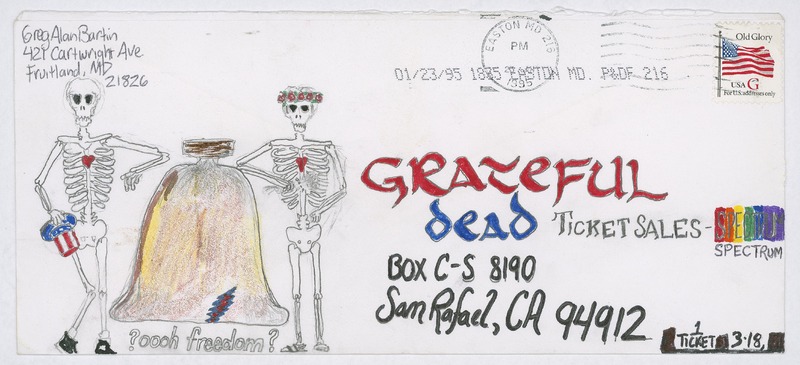 Greg Alan Bartin
421 Cartwright Ave
Fruitland, MD
21826
EASTON MD 216
PM
1995
01/23/95 1825 EASTON MD. P&DF 216
Old Glory
USA G
For U.S. addresses only
GRATEFUL
dead TICKET SALES-
SPECTRUM
SPECTRUM
BOX C-S 8190
San Rafael, CA 94912
1
TICKET 3·18,
?oooh freedom?